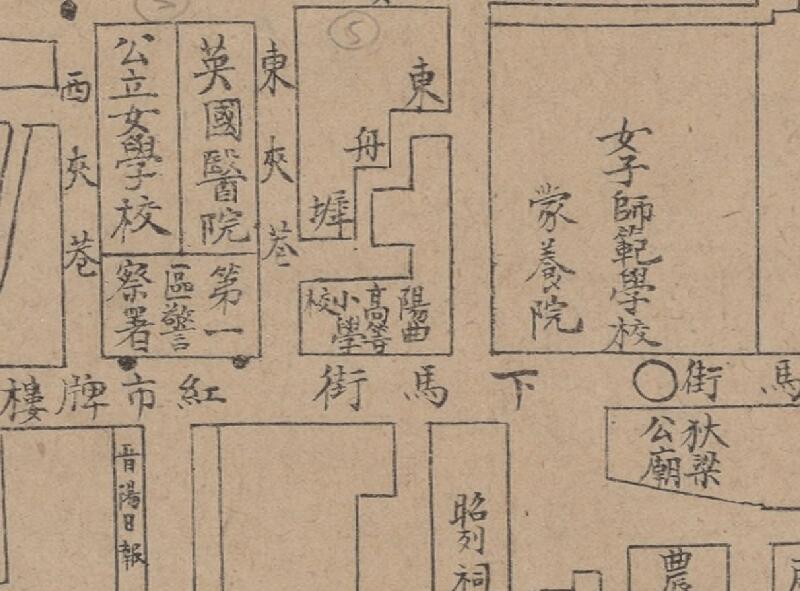 西夾巷
公立女學校
英國醫院
東夾巷
5
東
舟
墀
女子師範學校
蒙養院
第一
區警
察署
陽曲
高等
小學
校
紅市牌樓
下馬街
馬街
狄梁
公廟
晋陽日報
昭列祠
農